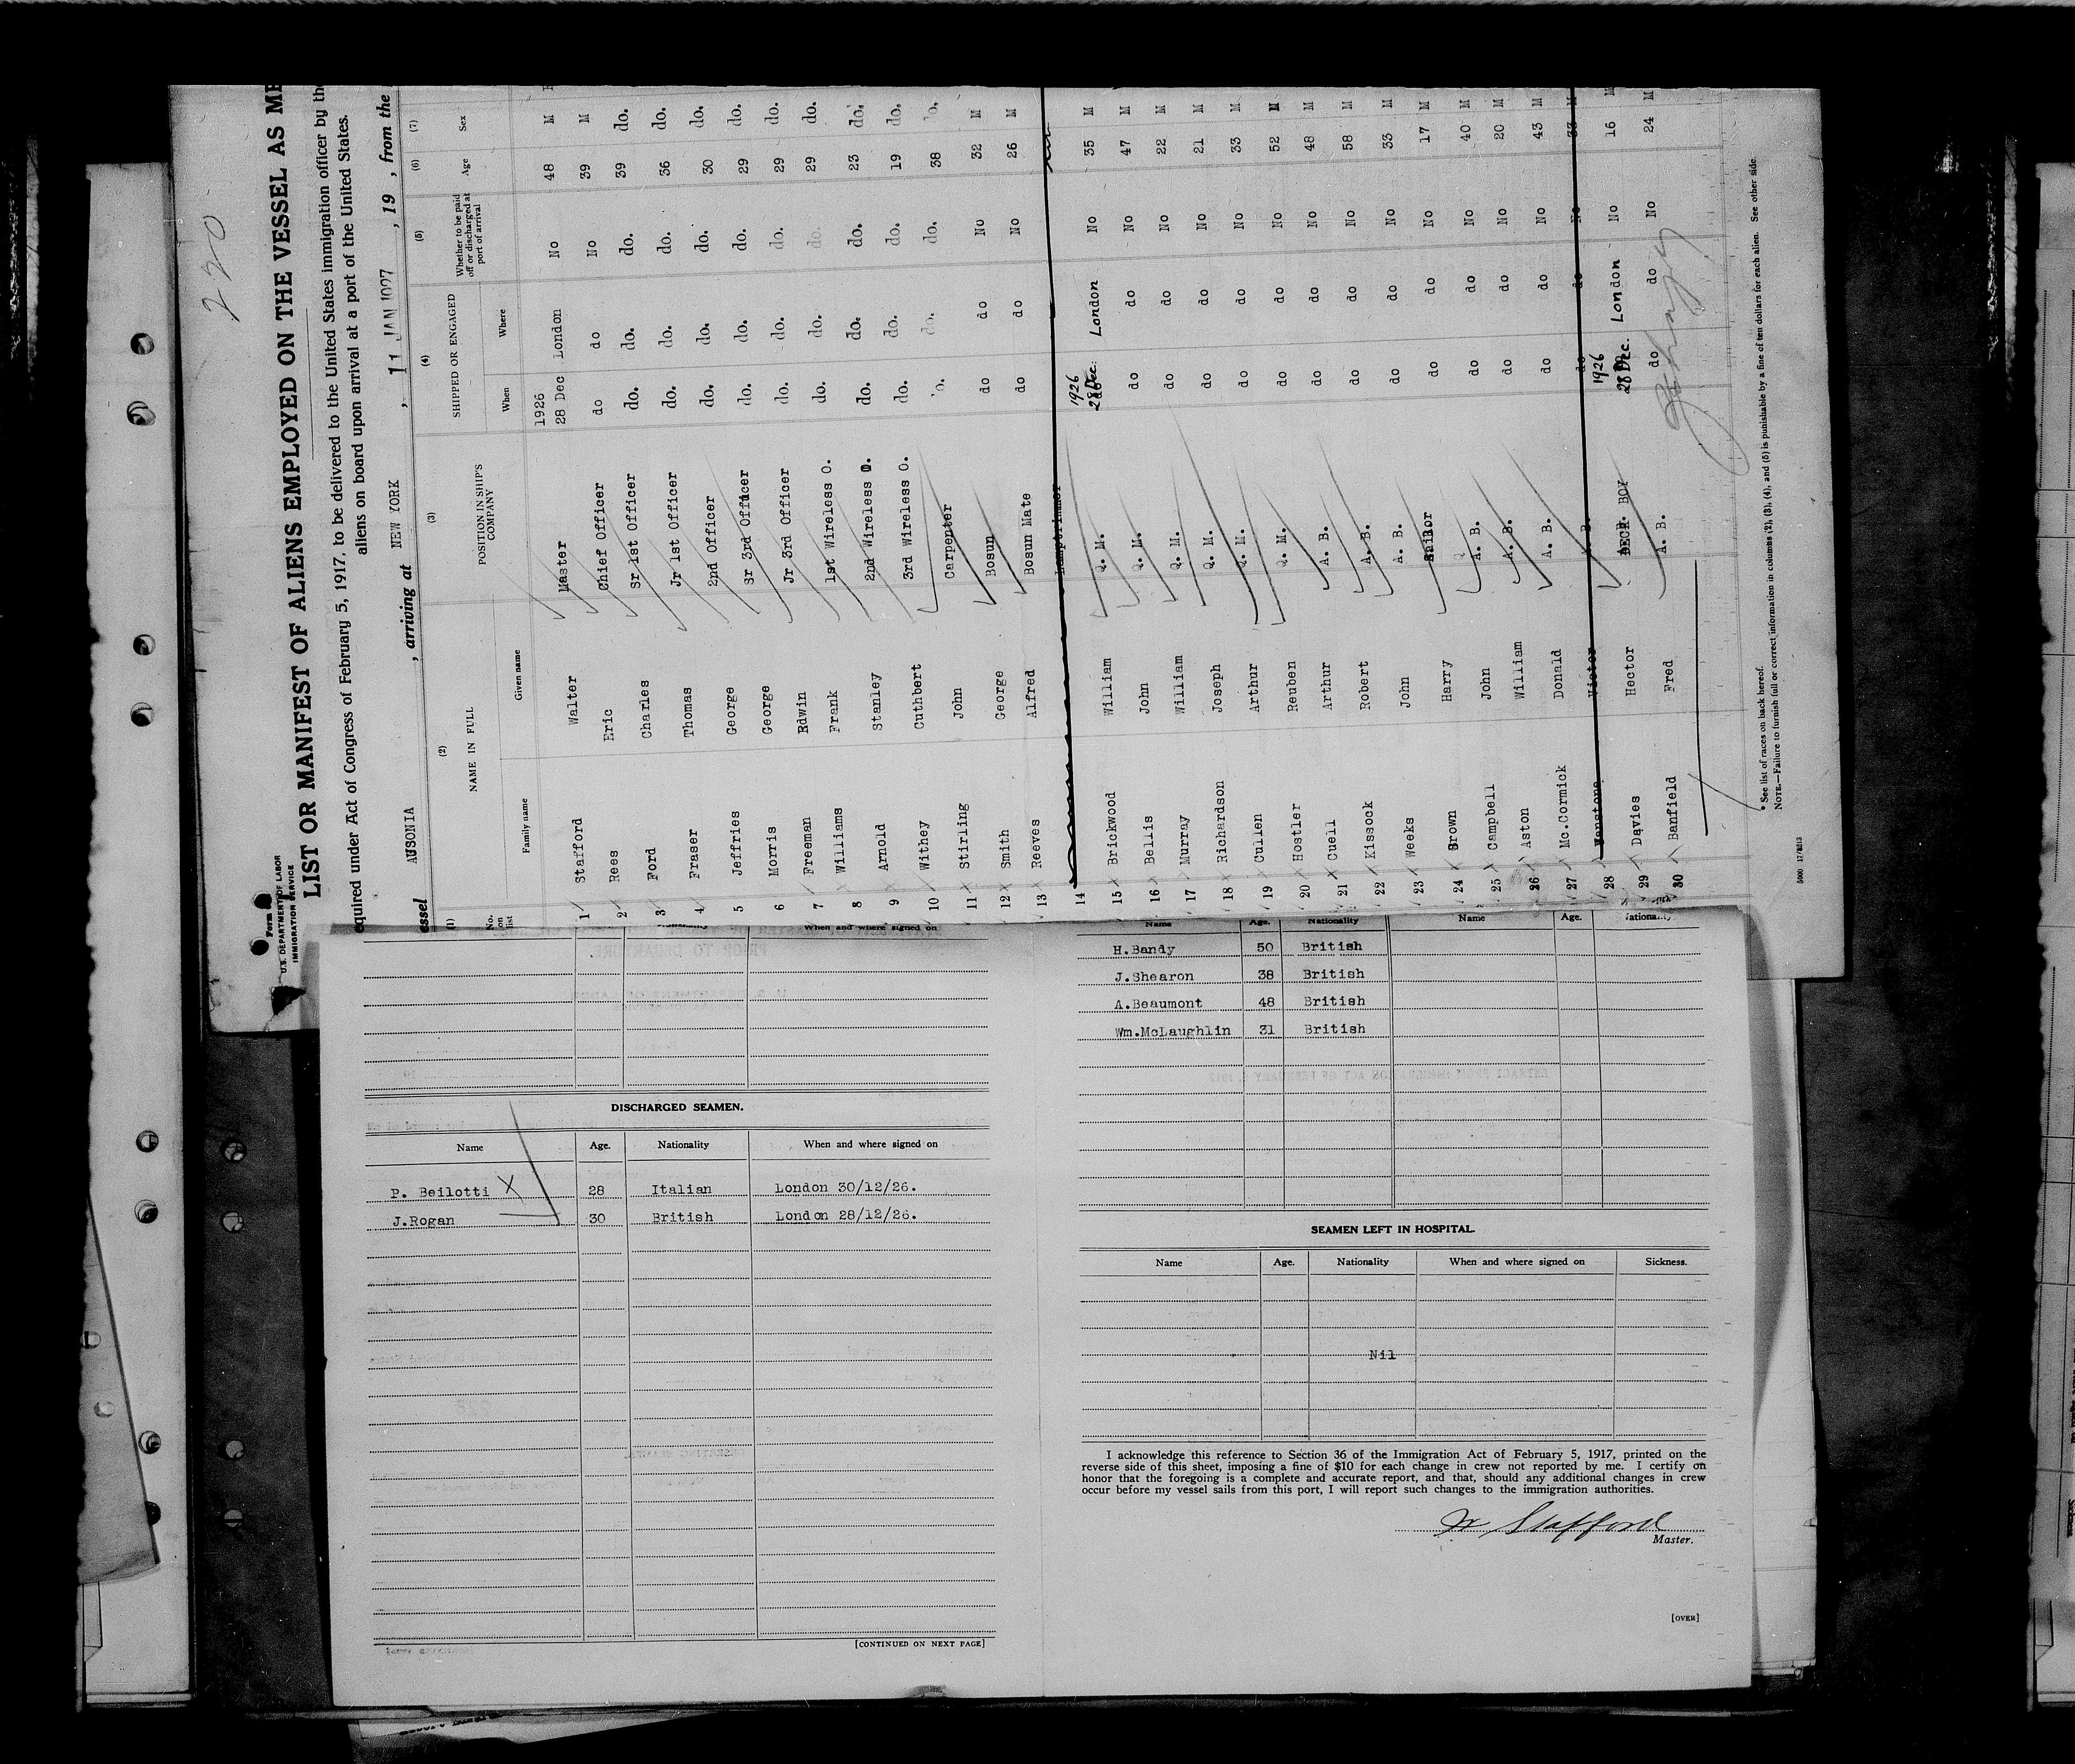 220
Form
U.S. DEPARTMENT OF LABOR
IMMIGRATION SERVICE
LIST OR MANIFEST OF ALIENS EMPLOYED ON THE VESSEL AS
equired under Act of Congress of February 5, 1917, to be delivered to the United States immigration officer by the
aliens on board upon arrival at a port of the United States.
essel AUSONIA , arriving at NEW YORK , 11 JAN 1927 , 19 , from the
(1) (2) (3) (4) (5) (6) (7)
No. on list NAME IN FULL POSITION IN SHIP'S COMPANY SHIPPED OR ENGAGED Whether to be paid off or discharged at port of arrival Age Sex
Family name Given name When Where
1926
1 Stafford Walter Master 28 Dec London No 48 M
2 Rees Eric Chief Officer do do No 39 M
3 Ford Charles Sr 1st Officer do. do. do. 39 do.
4 Fraser Thomas Jr 1st Officer do. do. do. 36 do.
5 Jeffries George 2nd Officer do. do. do. 30 do.
6 Morris George Sr 3rd Officer do. do. do. 29 do.
7 Freeman Edwin Jr 3rd Officer do. do. do. 29 do.
8 Williams Frank 1st Wireless O. do. do. do. 29 do.
9 Arnold Stanley 2nd Wireless O. do. do. do. 23 do.
10 Withey Cuthbert 3rd Wireless O. do. do. do. 19 do.
11 Stirling John Carpenter do. do. do. 38 do.
12 Smith George Bosun do do No 32 M
13 Reeves Alfred Bosun Mate do do No 26 M
14 Lamptrimmer
1926
15 Brickwood William Q. M. 28 Dec. London No 35 M
16 Bellis John Q. M. do do No 47 M
17 Murray William Q. M. do do No 22 M
18 Richardson Joseph Q. M. do do No 21 M
19 Cullen Arthur Q. M. do do No 33 M
20 Hostler Reuben Q. M. do do No 52 M
21 Cuell Arthur A. B. do do No 48 M
22 Kissock Robert A. B. do do No 58 M
23 Weeks John A. B. do do No 33 M
24 Brown Harry Sailor do do No 17 M
25 Campbell John A. B. do do No 40 M
26 Aston William A. B. do do No 20 M
27 Mc.Cormick Donald A. B. do do No 43 M
28 Venstone Victor A. B. do do No 33 M
1926
29 Davies Hector DECK BOY 28 Dec. London No 16 M
30 Banfield Fred A. B. do do No 24 M
* See list of races on back hereof.
NOTE.—Failure to furnish full or correct information in columns (2), (3), (4), and (5) is punishable by a fine of ten dollars for each alien. See other side.
When and where signed on
DISCHARGED SEAMEN.
Name Age. Nationality When and where signed on
P. Beilotti X 28 Italian London 30/12/26.
J.Rogan 30 British London 28/12/26.
[CONTINUED ON NEXT PAGE]
Name Age. Nationality Name Age. Nationality
H.Bandy 50 British
J.Shearon 38 British
A.Beaumont 48 British
Wm.McLaughlin 31 British
SEAMEN LEFT IN HOSPITAL.
Name Age. Nationality When and where signed on Sickness.
Nil
I acknowledge this reference to Section 36 of the Immigration Act of February 5, 1917, printed on the
reverse side of this sheet, imposing a fine of $10 for each change in crew not reported by me. I certify on
honor that the foregoing is a complete and accurate report, and that, should any additional changes in crew
occur before my vessel sails from this port, I will report such changes to the immigration authorities.
W Stafford
Master.
[OVER]